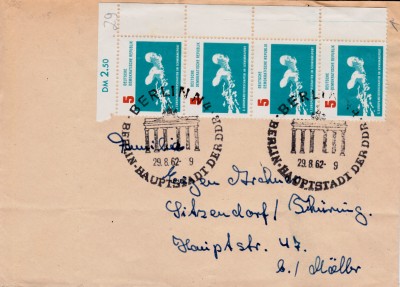 DM 2,50
5 DEUTSCHE DEMOKRATISCHE REPUBLIK
5 DEUTSCHE DEMOKRATISCHE REPUBLIK
5 DEUTSCHE DEMOKRATISCHE REPUBLIK
5 DEUTSCHE DEMOKRATISCHE REPUBLIK
BERLIN N4
29.8.62-9
BERLIN-HAUPTSTADT DER DDR
BERLIN N4
29.8.62-9
BERLIN-HAUPTSTADT DER DDR
Familie
Eugen
Sitzendorf/Thüring.
Hauptstr. 47
b./ Möller